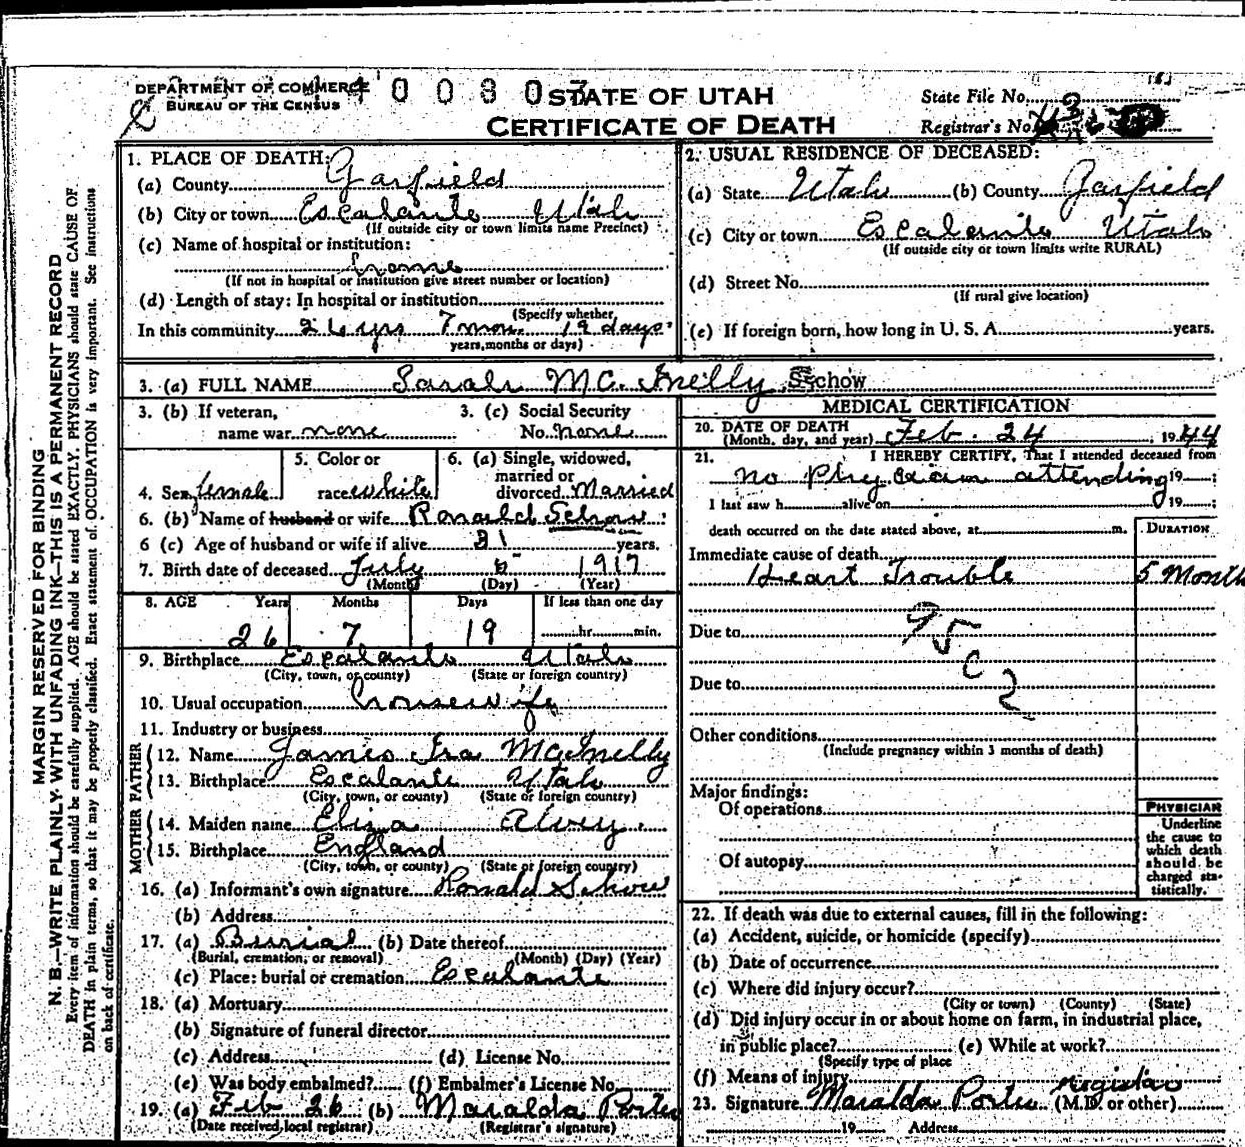 DEPARTMENT OF COMMERCE
BUREAU OF THE CENSUS
STATE OF UTAH
CERTIFICATE OF DEATH
State File No.
Registrar's No.
1. PLACE OF DEATH:
(a) County Garfield
(b) City or town Escalante Utah
(If outside city or town limits name Precinct)
(c) Name of hospital or institution:
home
(If not in hospital or institution give street number or location)
(d) Length of stay: In hospital or institution
(Specify whether
In this community 26 yrs 7 mon. 19 days.
years, months or days)
2. USUAL RESIDENCE OF DECEASED:
(a) State Utah (b) County Garfield
(c) City or town Escalante Utah
(If outside city or town limits write RURAL)
(d) Street No.
(If rural give location)
(e) If foreign born, how long in U. S. A. years.
3. (a) FULL NAME Sarah Mc. Inelly Schow
3. (b) If veteran,
name war none
3. (c) Social Security
No. none
4. Sex female
5. Color or
race white
6. (a) Single, widowed,
married or
divorced Married
6. (b) Name of husband or wife Ronald Schow
6 (c) Age of husband or wife if alive 31 years.
7. Birth date of deceased July 5 1917
(Month) (Day) (Year)
8. AGE Years Months Days If less than one day
26 7 19 hr. min.
9. Birthplace Escalante Utah
(City, town, or county) (State or foreign country)
10. Usual occupation housewife
11. Industry or business
FATHER
12. Name James Ira McInelly
13. Birthplace Escalante Utah
(City, town, or county) (State or foreign country)
MOTHER
14. Maiden name Eliza Alvey
15. Birthplace England
(City, town, or county) (State or foreign country)
16. (a) Informant's own signature Ronald Schow
(b) Address
17. (a) Burial (b) Date thereof
(Burial, cremation, or removal) (Month) (Day) (Year)
(c) Place: burial or cremation Escalante
18. (a) Mortuary
(b) Signature of funeral director
(c) Address (d) License No.
(e) Was body embalmed? (f) Embalmer's License No.
19. (a) Feb 26 (b) Maralda Porter
(Date received local registrar) (Registrar's signature)
MEDICAL CERTIFICATION
20. DATE OF DEATH
(Month, day, and year) Feb. 24, 1944
21. I HEREBY CERTIFY, That I attended deceased from
no Phycician attending 19 ;
I last saw h alive on 19 ;
death occurred on the date stated above, at m.
DURATION
Immediate cause of death
Heart Trouble 5 Month
Due to
95 c 2
Due to
Other conditions
(Include pregnancy within 3 months of death)
Major findings:
Of operations
Of autopsy
PHYSICIAN
Underline
the cause to
which death
should be
charged sta-
tistically.
22. If death was due to external causes, fill in the following:
(a) Accident, suicide, or homicide (specify)
(b) Date of occurrence
(c) Where did injury occur?
(City or town) (County) (State)
(d) Did injury occur in or about home on farm, in industrial place,
in public place? (e) While at work?
(Specify type of place
(f) Means of injury
registrar
23. Signature Maralda Porter (M.D. or other)
19 Address
MARGIN RESERVED FOR BINDING
N. B.—WRITE PLAINLY WITH UNFADING INK—THIS IS A PERMANENT RECORD
Every item of information should be carefully supplied. AGE should be stated EXACTLY. PHYSICIANS should state CAUSE OF
DEATH in plain terms, so that it may be properly classified. Exact statement of OCCUPATION is very important. See instructions
on back of certificate.